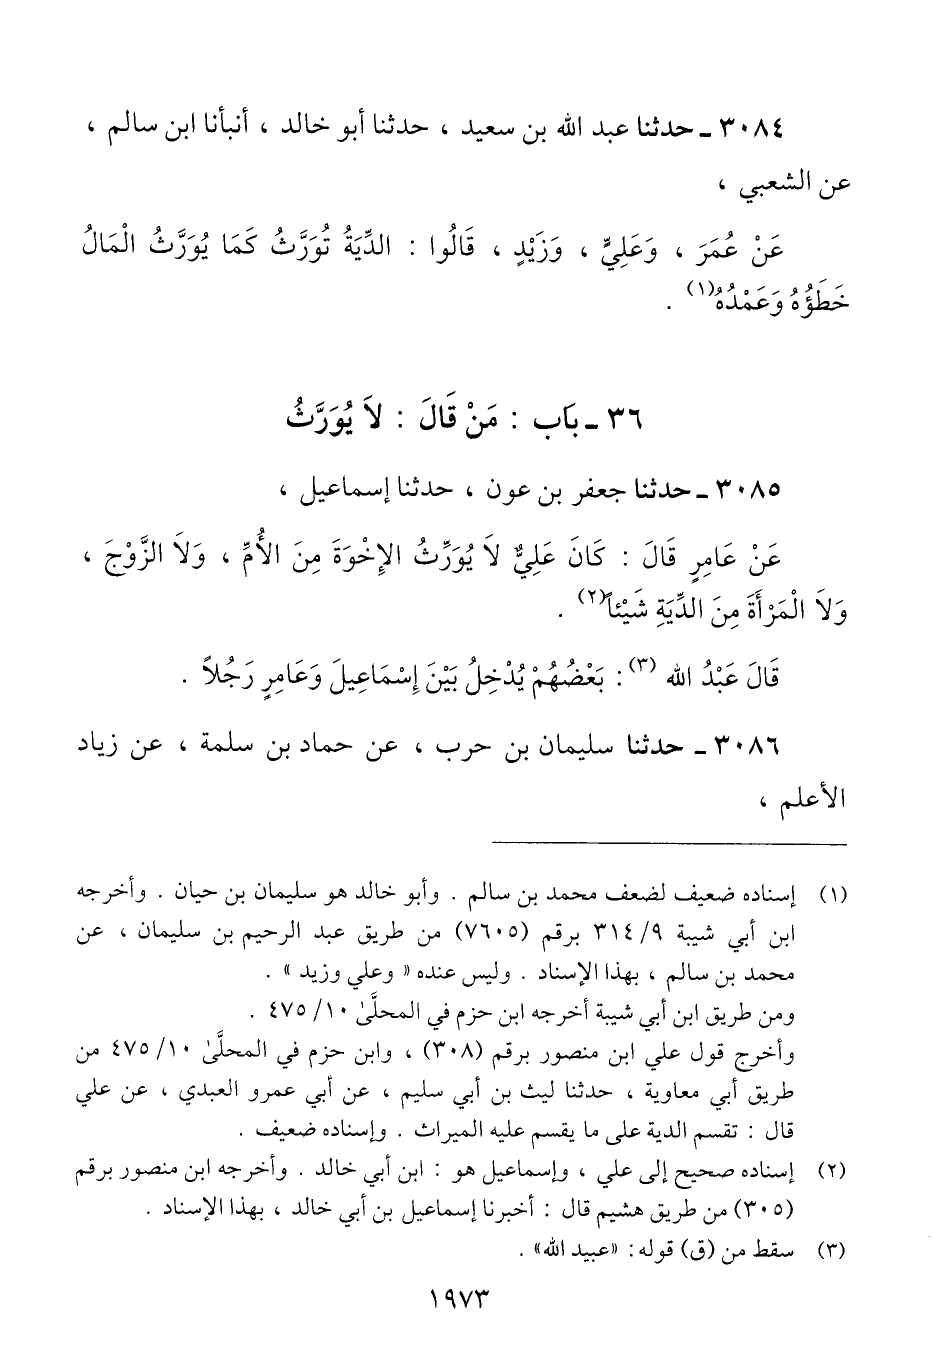 ٣٠٨٤ ـ حدثنا عبد الله بن سعيد ، حدثنا أبو خالد ، أنبأنا ابن سالم ،
عن الشعبي ،
عَنْ عُمَرَ ، وَعَلِيٍّ ، وَزَيْدٍ ، قَالُوا : الدِّيَةُ تُوَرَّثُ كَمَا يُوَرَّثُ الْمَالُ
خَطَؤُهُ وَعَمْدُهُ(١) .
٣٦ ـ بَاب : مَنْ قَالَ : لاَ يُوَرَّثُ
٣٠٨٥ ـ حدثنا جعفر بن عون ، حدثنا إسماعيل ،
عَنْ عَامِرٍ قَالَ : كَانَ عَلِيٌّ لاَ يُوَرِّثُ الإِخْوَةَ مِنَ الأُمِّ ، وَلاَ الزَّوْجَ ،
وَلاَ الْمَرْأَةَ مِنَ الدِّيَةِ شَيْئاً(٢) .
قَالَ عَبْدُ الله (٣) : بَعْضُهُمْ يُدْخِلُ بَيْنَ إِسْمَاعِيلَ وَعَامِرٍ رَجُلاً .
٣٠٨٦ ـ حدثنا سليمان بن حرب ، عن حماد بن سلمة ، عن زياد
الأعلم ،
(١) إسناده ضعيف لضعف محمد بن سالم . وأبو خالد هو سليمان بن حيان . وأخرجه
ابن أبي شيبة ٣١٤/٩ برقم (٧٦٠٥) من طريق عبد الرحيم بن سليمان ، عن
محمد بن سالم ، بهذا الإسناد . وليس عنده « وعلي وزيد » .
ومن طريق ابن أبي شيبة أخرجه ابن حزم في المحلَّىٰ ١٠/ ٤٧٥ .
وأخرج قول علي ابن منصور برقم (٣٠٨) ، وابن حزم في المحلَّىٰ ١٠/ ٤٧٥ من
طريق أبي معاوية ، حدثنا ليث بن أبي سليم ، عن أبي عمرو العبدي ، عن علي
قال : تقسم الدية على ما يقسم عليه الميراث . وإسناده ضعيف .
(٢) إسناده صحيح إلى علي ، وإسماعيل هو : ابن أبي خالد . وأخرجه ابن منصور برقم
(٣٠٥) من طريق هشيم قال : أخبرنا إسماعيل بن أبي خالد ، بهذا الإسناد .
(٣) سقط من (ق) قوله : «عبيد الله» .
١٩٧٣